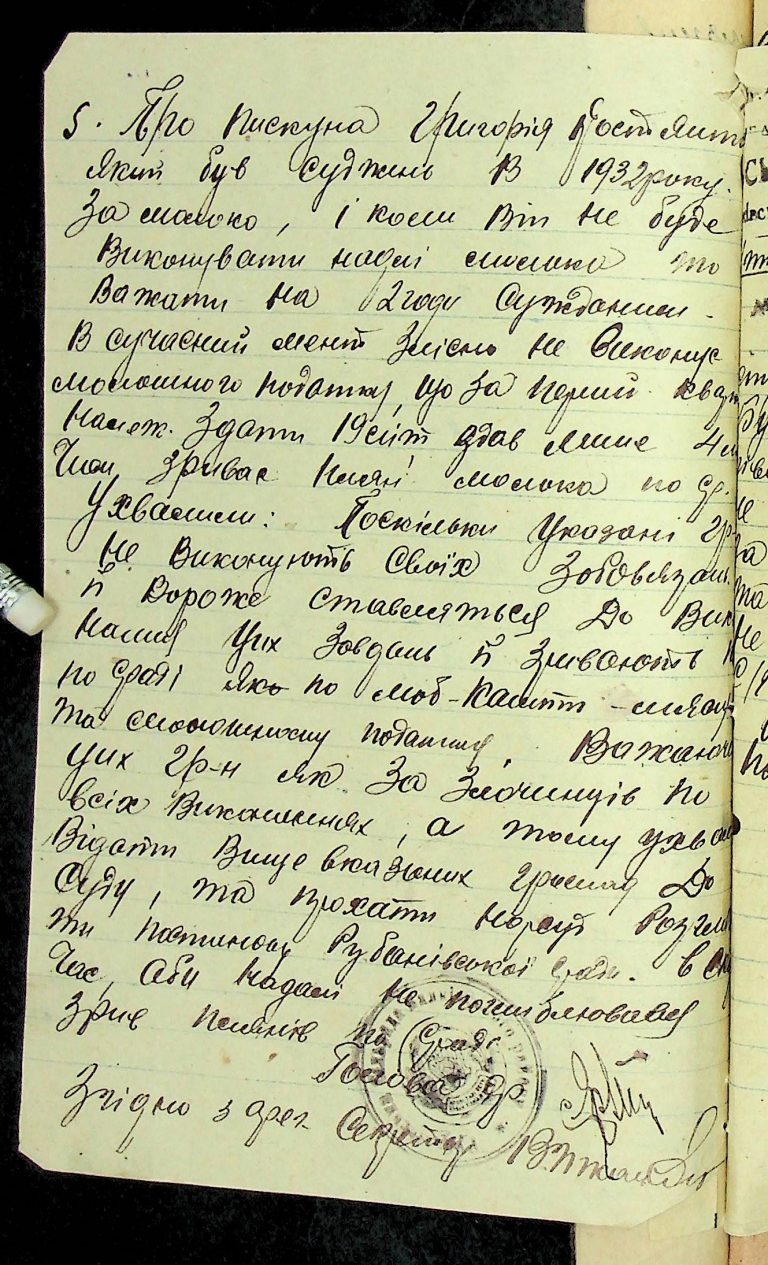 5. Про Пискуна Григорія Костянти
який був суджень в 1932року.
За молоко, і коли він не буде
виконувати надалі молока то
важати на 2 году сужданим.
в сучасний мент злісно не виконує
молошного податку, що за перий кварт
належ. здати 19 літ здав лише 4
Чим зриває плян молока по с/р.
Ухвалили: Поскільки указані гр
не виконують своїх зобовязань
й вороже ставляться до вик
нання цих завдань й зривають
по сраді як по моб-кашт -мляс
та молошному податку, важаючи
цих гр-н як за злочинців по
всіх виконаннях, а тому ухвал
відати вище вказаних громад до
суду, та прохати нарсуд розгля
ти постанову Рубанівської сради. в
час, аби надалі не поглиблювався
зрив плянів по сраді
Голова с/р
Згідно з орег. Секретар